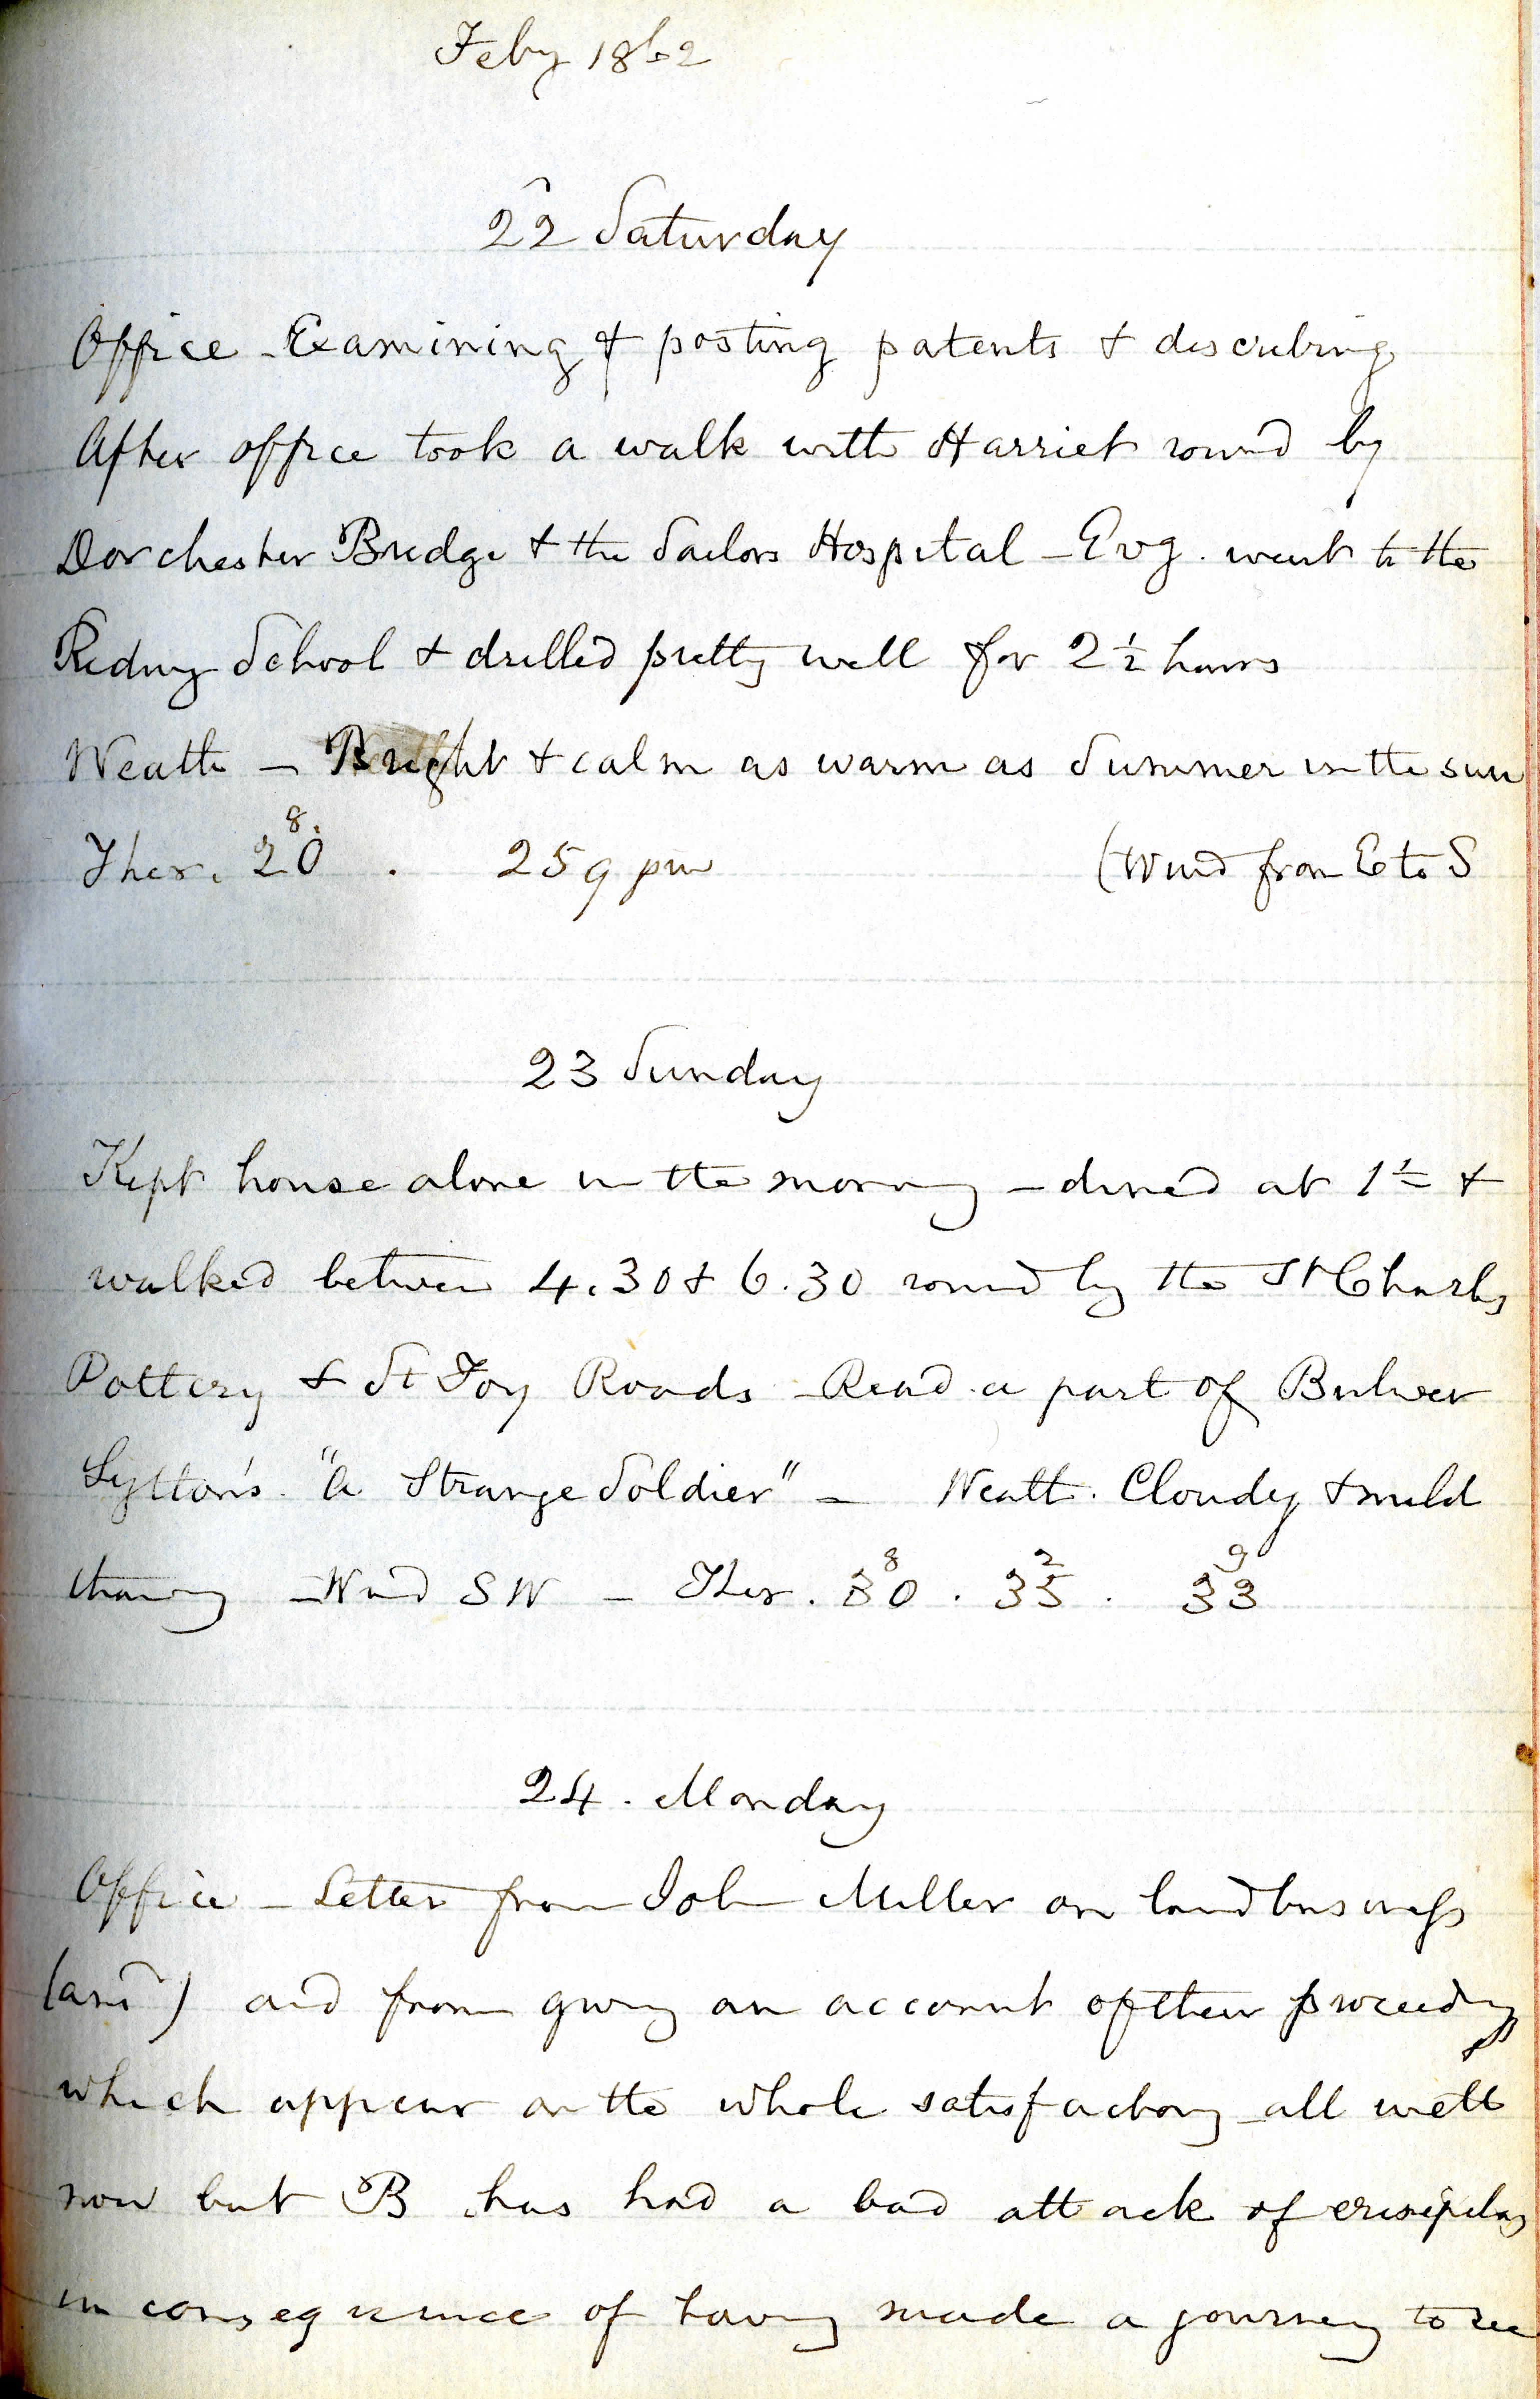 Feby 1862
22 Saturday
Office - Examining & posting patents & describing
After office took a walk with Harriet round by
Dorchester Bridge & the Sailors Hospital - Evg. went to the
Riding School & drilled pretty well for 2½ hours
Weath - Bright & calm as warm as Summer in the sun
Ther. 20 8. . 25 9 pm (Wind from E to S
23 Sunday
Kept house alone in the morning - dined at 1½ &
walked between 4.30 & 6.30 round by the St Charles
Pottery & St Foy Roads - Read a part of Bulwer
Lytton's "A Strange Soldier" - Weath. Cloudy & mild
thawing - Wind SW - Ther. 30 8 . 35 2 . 33 9
24. Monday
Office - Letter from John Miller on land business
(ansd) and from giving an account of their proceedings
which appear on the whole satisfactory - all well
now but B has had a bad attack of erisipelas
in consequence of having made a journey to see